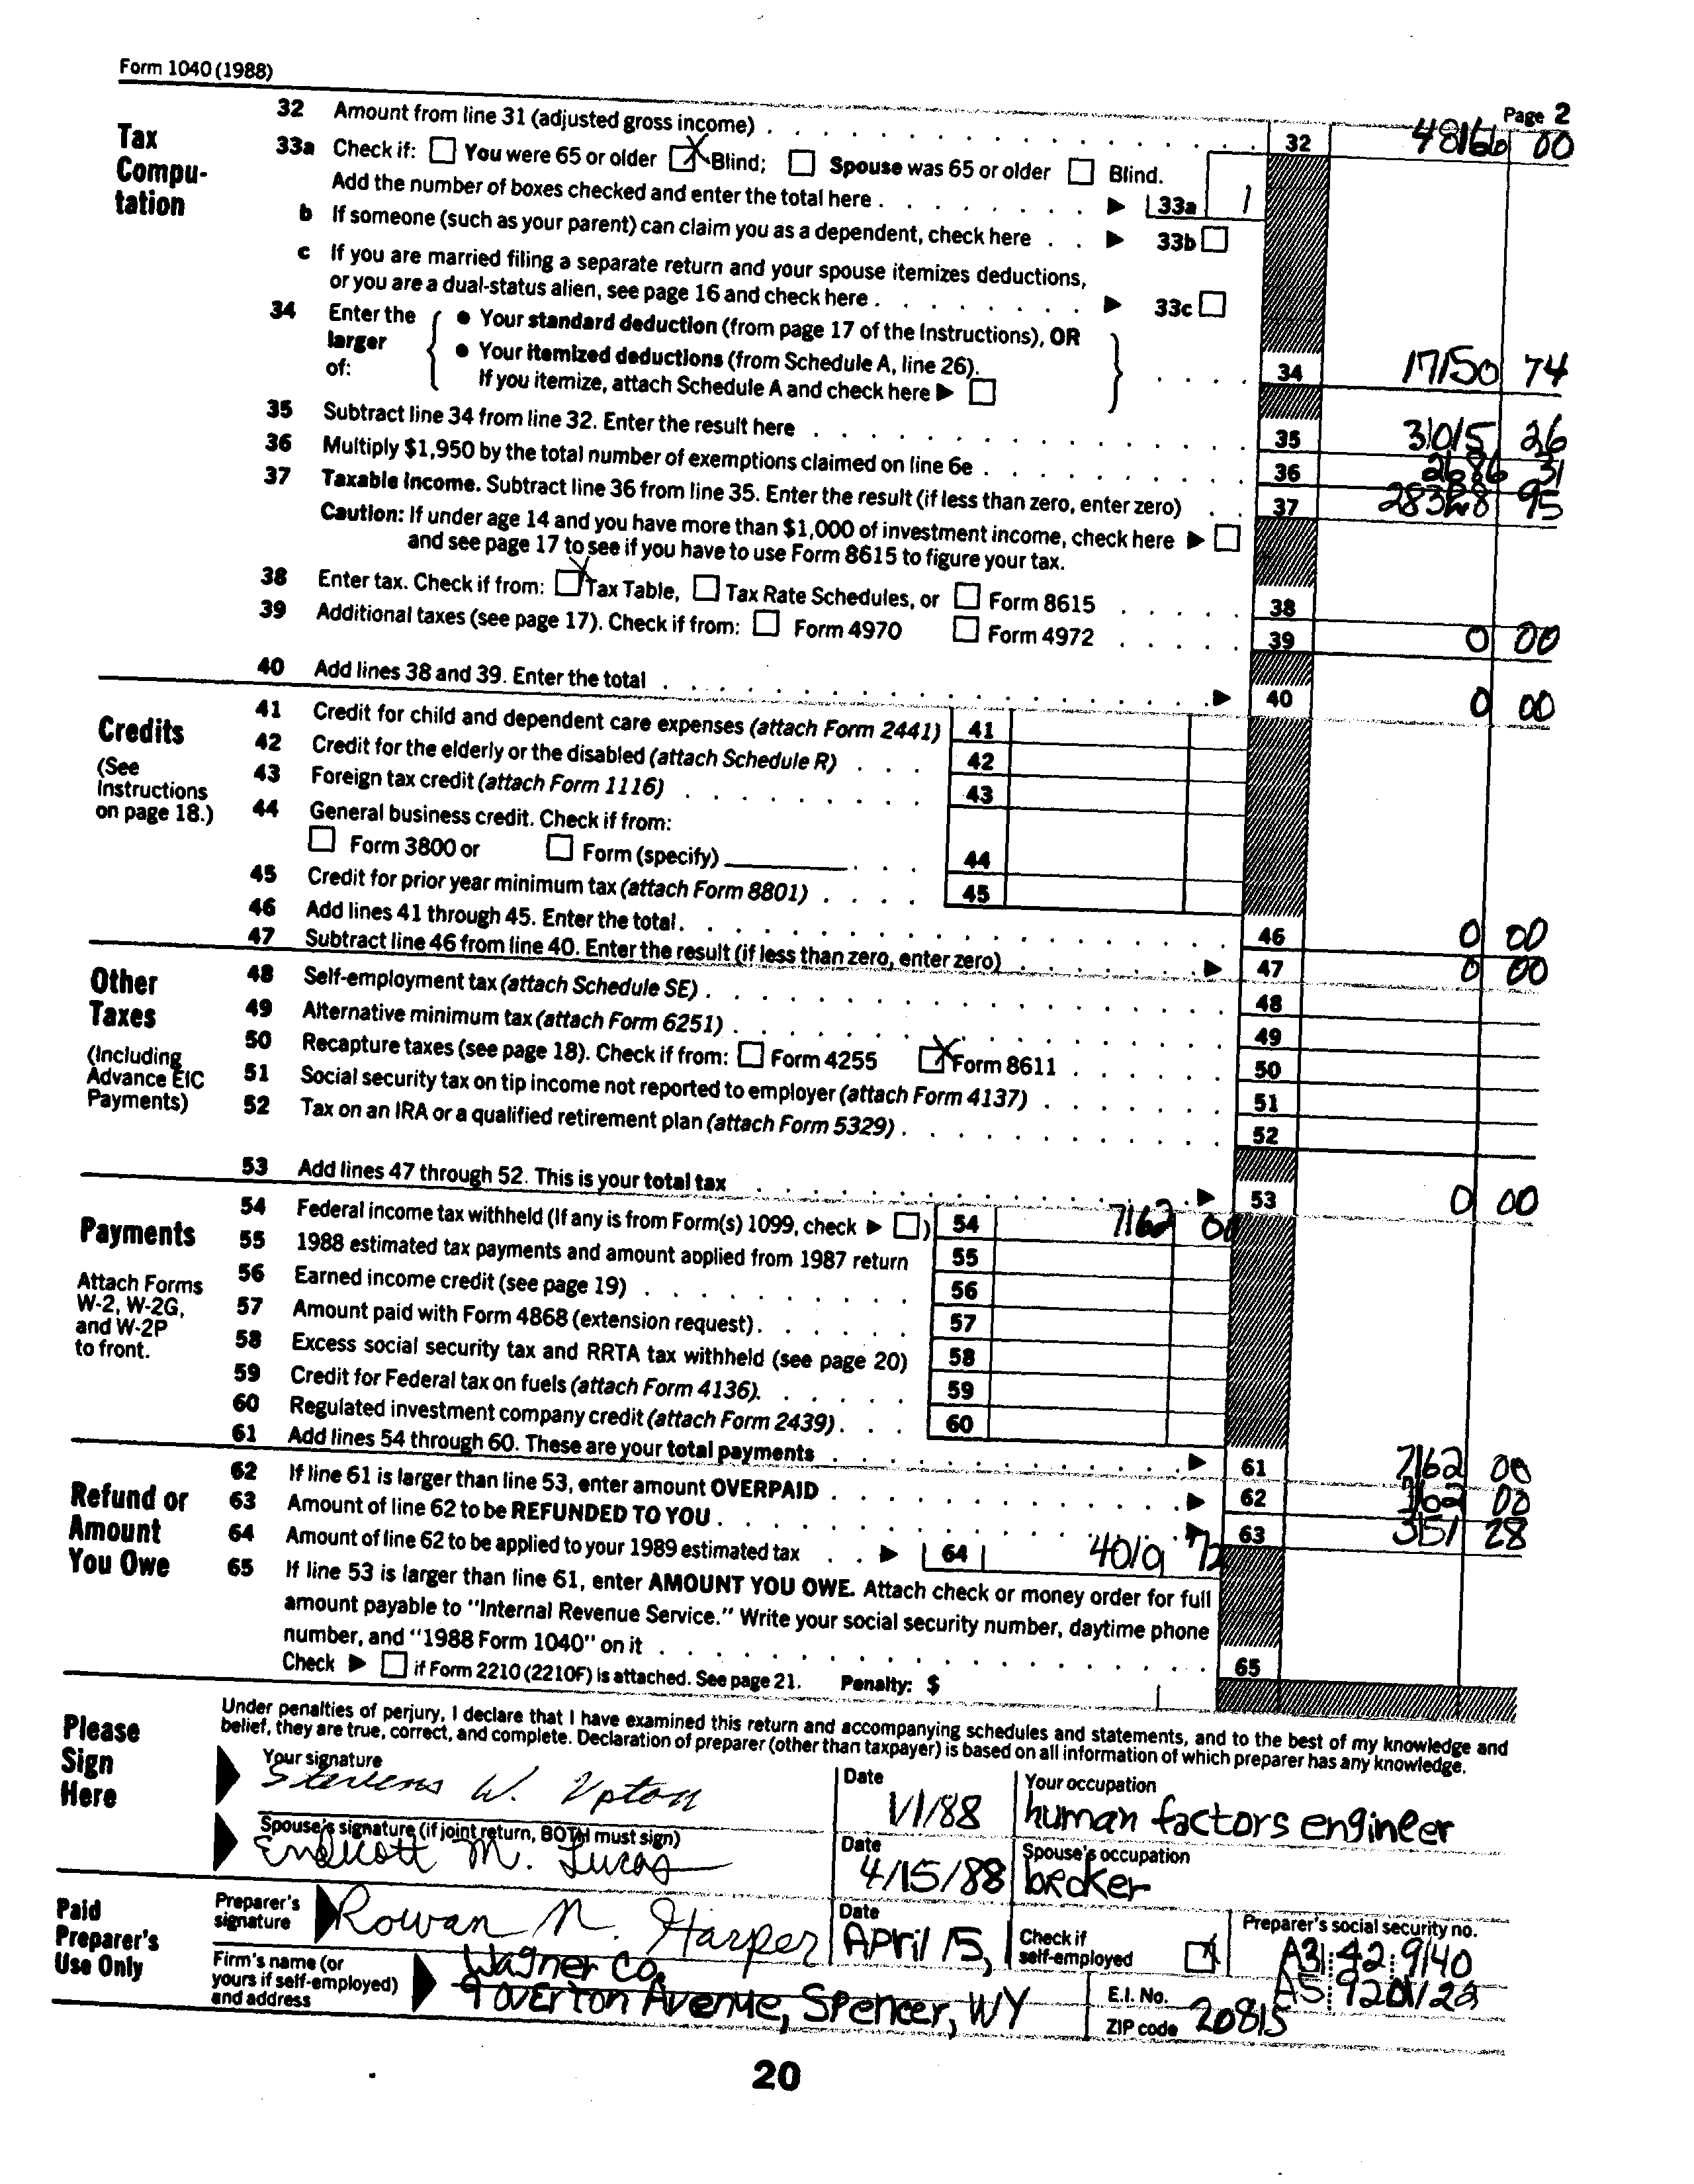 Form 1040 (1988)
Page 2
Tax Compu- tation
32 Amount from line 31 (adjusted gross income) . . . 32 48166 00
33a Check if: You were 65 or older X Blind; Spouse was 65 or older Blind.
Add the number of boxes checked and enter the total here . . . 33a 1
b If someone (such as your parent) can claim you as a dependent, check here . . 33b
c If you are married filing a separate return and your spouse itemizes deductions,
or you are a dual-status alien, see page 16 and check here . . . 33c
34 Enter the larger of:
• Your standard deduction (from page 17 of the Instructions), OR
• Your itemized deductions (from Schedule A, line 26).
If you itemize, attach Schedule A and check here
34 17150 74
35 Subtract line 34 from line 32. Enter the result here . . . 35 31015 26
36 Multiply $1,950 by the total number of exemptions claimed on line 6e . . . 36 2686 31
37 Taxable income. Subtract line 36 from line 35. Enter the result (if less than zero, enter zero) . . 37 28328 95
Caution: If under age 14 and you have more than $1,000 of investment income, check here
and see page 17 to see if you have to use Form 8615 to figure your tax.
38 Enter tax. Check if from: X Tax Table, Tax Rate Schedules, or Form 8615 . . . 38
39 Additional taxes (see page 17). Check if from: Form 4970 Form 4972 . . . 39 0 00
40 Add lines 38 and 39. Enter the total . . . 40 0 00
Credits
(See Instructions on page 18.)
41 Credit for child and dependent care expenses (attach Form 2441) 41
42 Credit for the elderly or the disabled (attach Schedule R) . . . 42
43 Foreign tax credit (attach Form 1116) . . . 43
44 General business credit. Check if from:
Form 3800 or Form (specify) . . . 44
45 Credit for prior year minimum tax (attach Form 8801) . . . 45
46 Add lines 41 through 45. Enter the total. . . . 46 0 00
47 Subtract line 46 from line 40. Enter the result (if less than zero, enter zero) . . . 47 0 00
Other Taxes
(Including Advance EIC Payments)
48 Self-employment tax (attach Schedule SE) . . . 48
49 Alternative minimum tax (attach Form 6251) . . . 49
50 Recapture taxes (see page 18). Check if from: Form 4255 X Form 8611 . . . 50
51 Social security tax on tip income not reported to employer (attach Form 4137) . . . 51
52 Tax on an IRA or a qualified retirement plan (attach Form 5329) . . . 52
53 Add lines 47 through 52. This is your total tax . . . 53 0 00
Payments
Attach Forms W-2, W-2G, and W-2P to front.
54 Federal income tax withheld (If any is from Form(s) 1099, check ) 54 7162 00
55 1988 estimated tax payments and amount applied from 1987 return 55
56 Earned income credit (see page 19) . . . 56
57 Amount paid with Form 4868 (extension request) . . . 57
58 Excess social security tax and RRTA tax withheld (see page 20) 58
59 Credit for Federal tax on fuels (attach Form 4136). . . . 59
60 Regulated investment company credit (attach Form 2439) . . . 60
61 Add lines 54 through 60. These are your total payments . . . 61 7162 00
Refund or Amount You Owe
62 If line 61 is larger than line 53, enter amount OVERPAID . . . 62 00
63 Amount of line 62 to be REFUNDED TO YOU . . . 63 3151 28
64 Amount of line 62 to be applied to your 1989 estimated tax . . 64 4010 72
65 If line 53 is larger than line 61, enter AMOUNT YOU OWE. Attach check or money order for full
amount payable to "Internal Revenue Service." Write your social security number, daytime phone
number, and "1988 Form 1040" on it . . . 65
Check if Form 2210 (2210F) is attached. See page 21. Penalty: $
Please Sign Here
Under penalties of perjury, I declare that I have examined this return and accompanying schedules and statements, and to the best of my knowledge and
belief, they are true, correct, and complete. Declaration of preparer (other than taxpayer) is based on all information of which preparer has any knowledge.
Your signature Stevens W. Upton
Date 1/1/88
Your occupation human factors engineer
Spouse's signature (if joint return, BOTH must sign) Endicott M. Lucas
Date 4/15/88
Spouse's occupation broker
Paid Preparer's Use Only
Preparer's signature Rowan N. Harper
Date April 15,
Check if self-employed X
Preparer's social security no. A31 42 9140
Firm's name (or yours if self-employed) and address
Wagner Co.
9 Overton Avenue, Spencer, WY
E.I. No. A5 9201123
ZIP code 20815
20